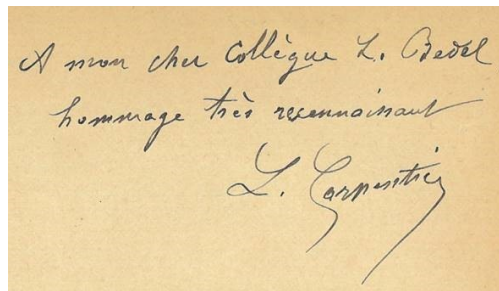 A mon cher Collègue L. Bedel
hommage très reconnaissant
L. Carpentier